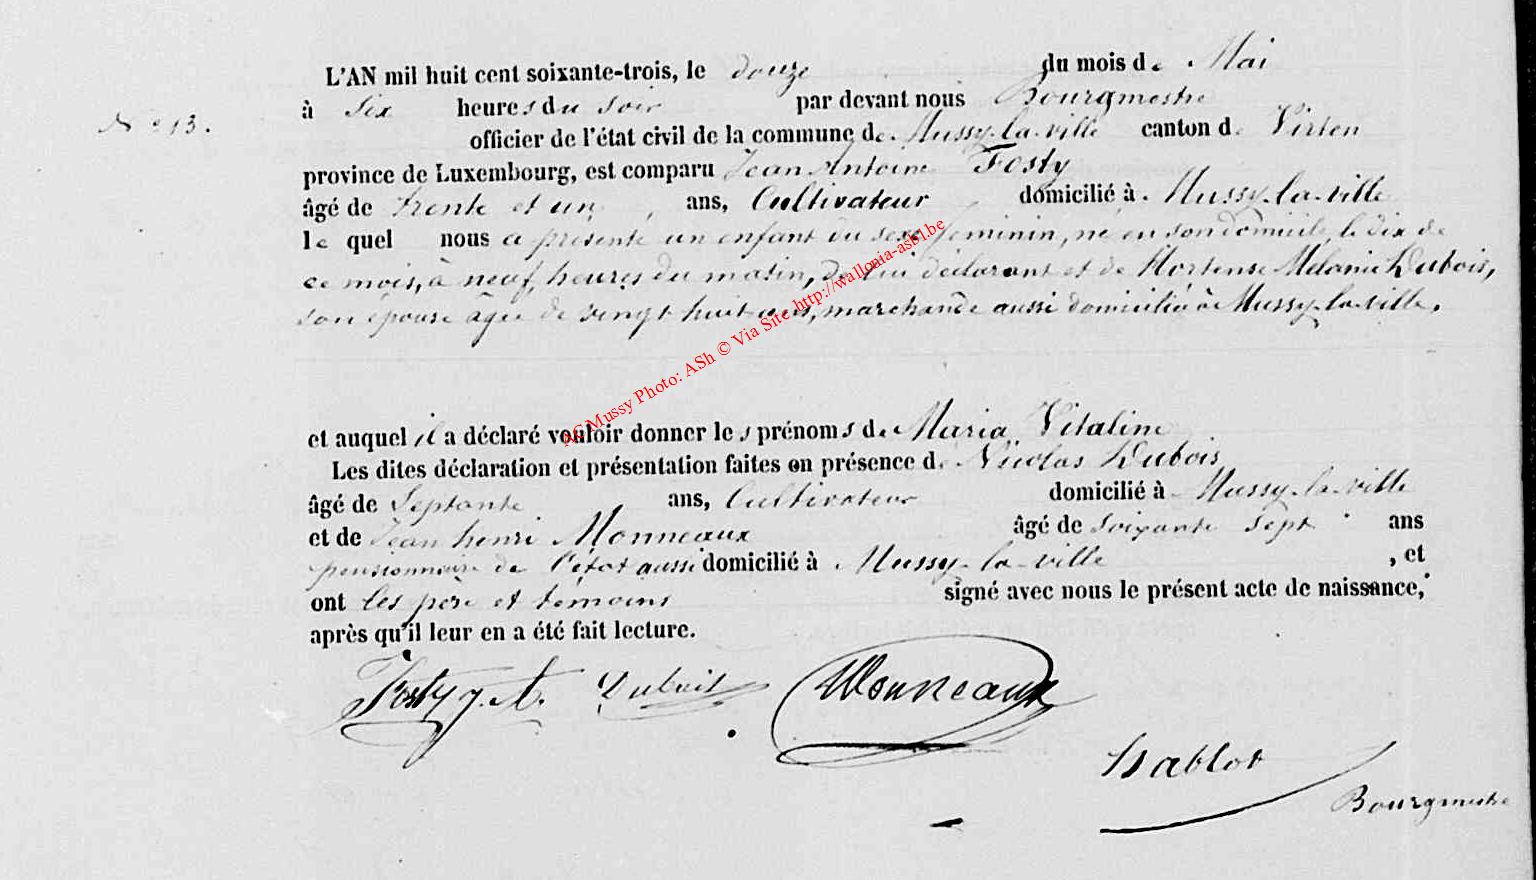 L'AN mil huit cent soixante-trois, le douze du mois de Mai
N° 13.
à six heures du soir par devant nous Bourgmestre
officier de l'état civil de la commune de Mussy-la-ville canton de Virton
province de Luxembourg, est comparu Jean Antoine Fosty
âgé de trente et un, ans, Cultivateur domicilié à Mussy-la-ville
le quel nous a présenté un enfant du sexe feminin, né en son domicile, le dix de
ce mois, à neuf heures du matin, de lui déclarant et de Hortense Mélanie Dubois,
son épouse âgée de vingt huit ans, marchande aussi domiciliée à Mussy-la-ville.
AC Mussy Photo: ASh © Via Site http://wallonia-asbl.be
et auquel il a déclaré vouloir donner les prénoms de Maria Vitaline
Les dites déclaration et présentation faites en présence de Nicolas Dubois
âgé de Septante ans, Cultivateur domicilié à Mussy-la-ville
et de Jean henri Monneaux âgé de soixante sept ans
pensionnaire de l'état aussi domicilié à Mussy-la-ville, et
ont les père et témoins signé avec nous le présent acte de naissance,
après qu'il leur en a été fait lecture.
Fosty J. A. Dubois Monneaux
Hablot
Bourgmestre